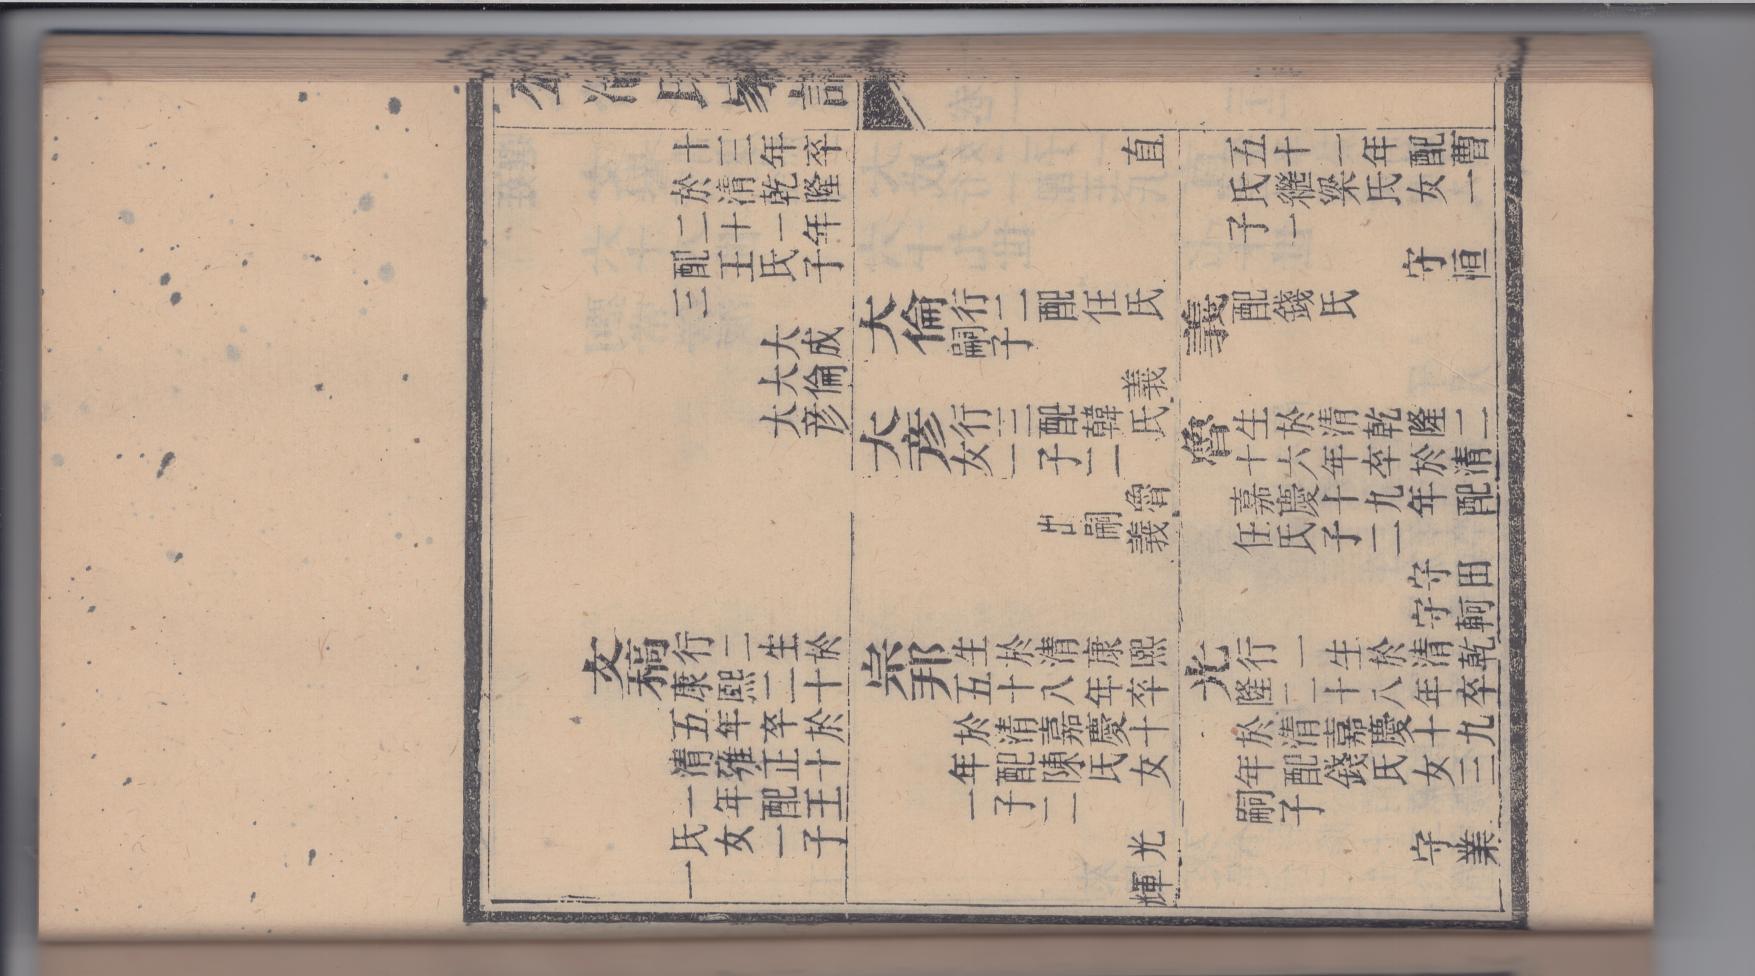 公冶氏家譜
十三年卒
於清乾隆
二十一年
配王氏子
三
大成
大倫
大彥
文稿
行二生於
康熙二十
五年卒於
清雍正十
一年配王
氏女一子
一
直
大倫
行二配任氏
嗣子
義
大彥
行三配韓氏
女一子二
魯
義出嗣
崇邦
生於清康熙
五十八年卒
於清嘉慶十
年配陳氏女
一子二
光
輝
五十一年配曹
氏繼梁氏女一
子一
守恒
義
配錢氏
魯
生於清乾隆二
十六年卒於清
嘉慶十九年配
任氏子二
守田
守軻
光
行一生於清乾
隆二十八年卒
於清嘉慶十九
年配錢氏女三
嗣子
守業